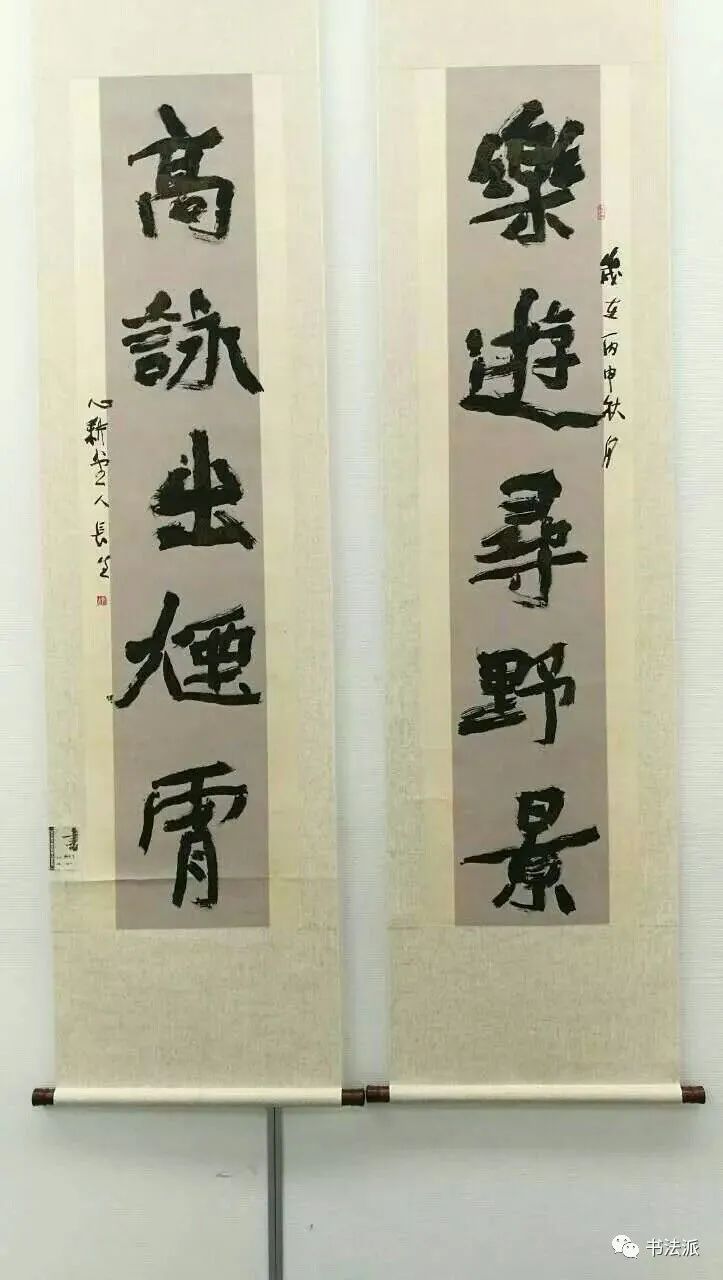 樂遊尋野景
歲在丙申秋月
高詠出煙霄
心耕堂人長
書法派